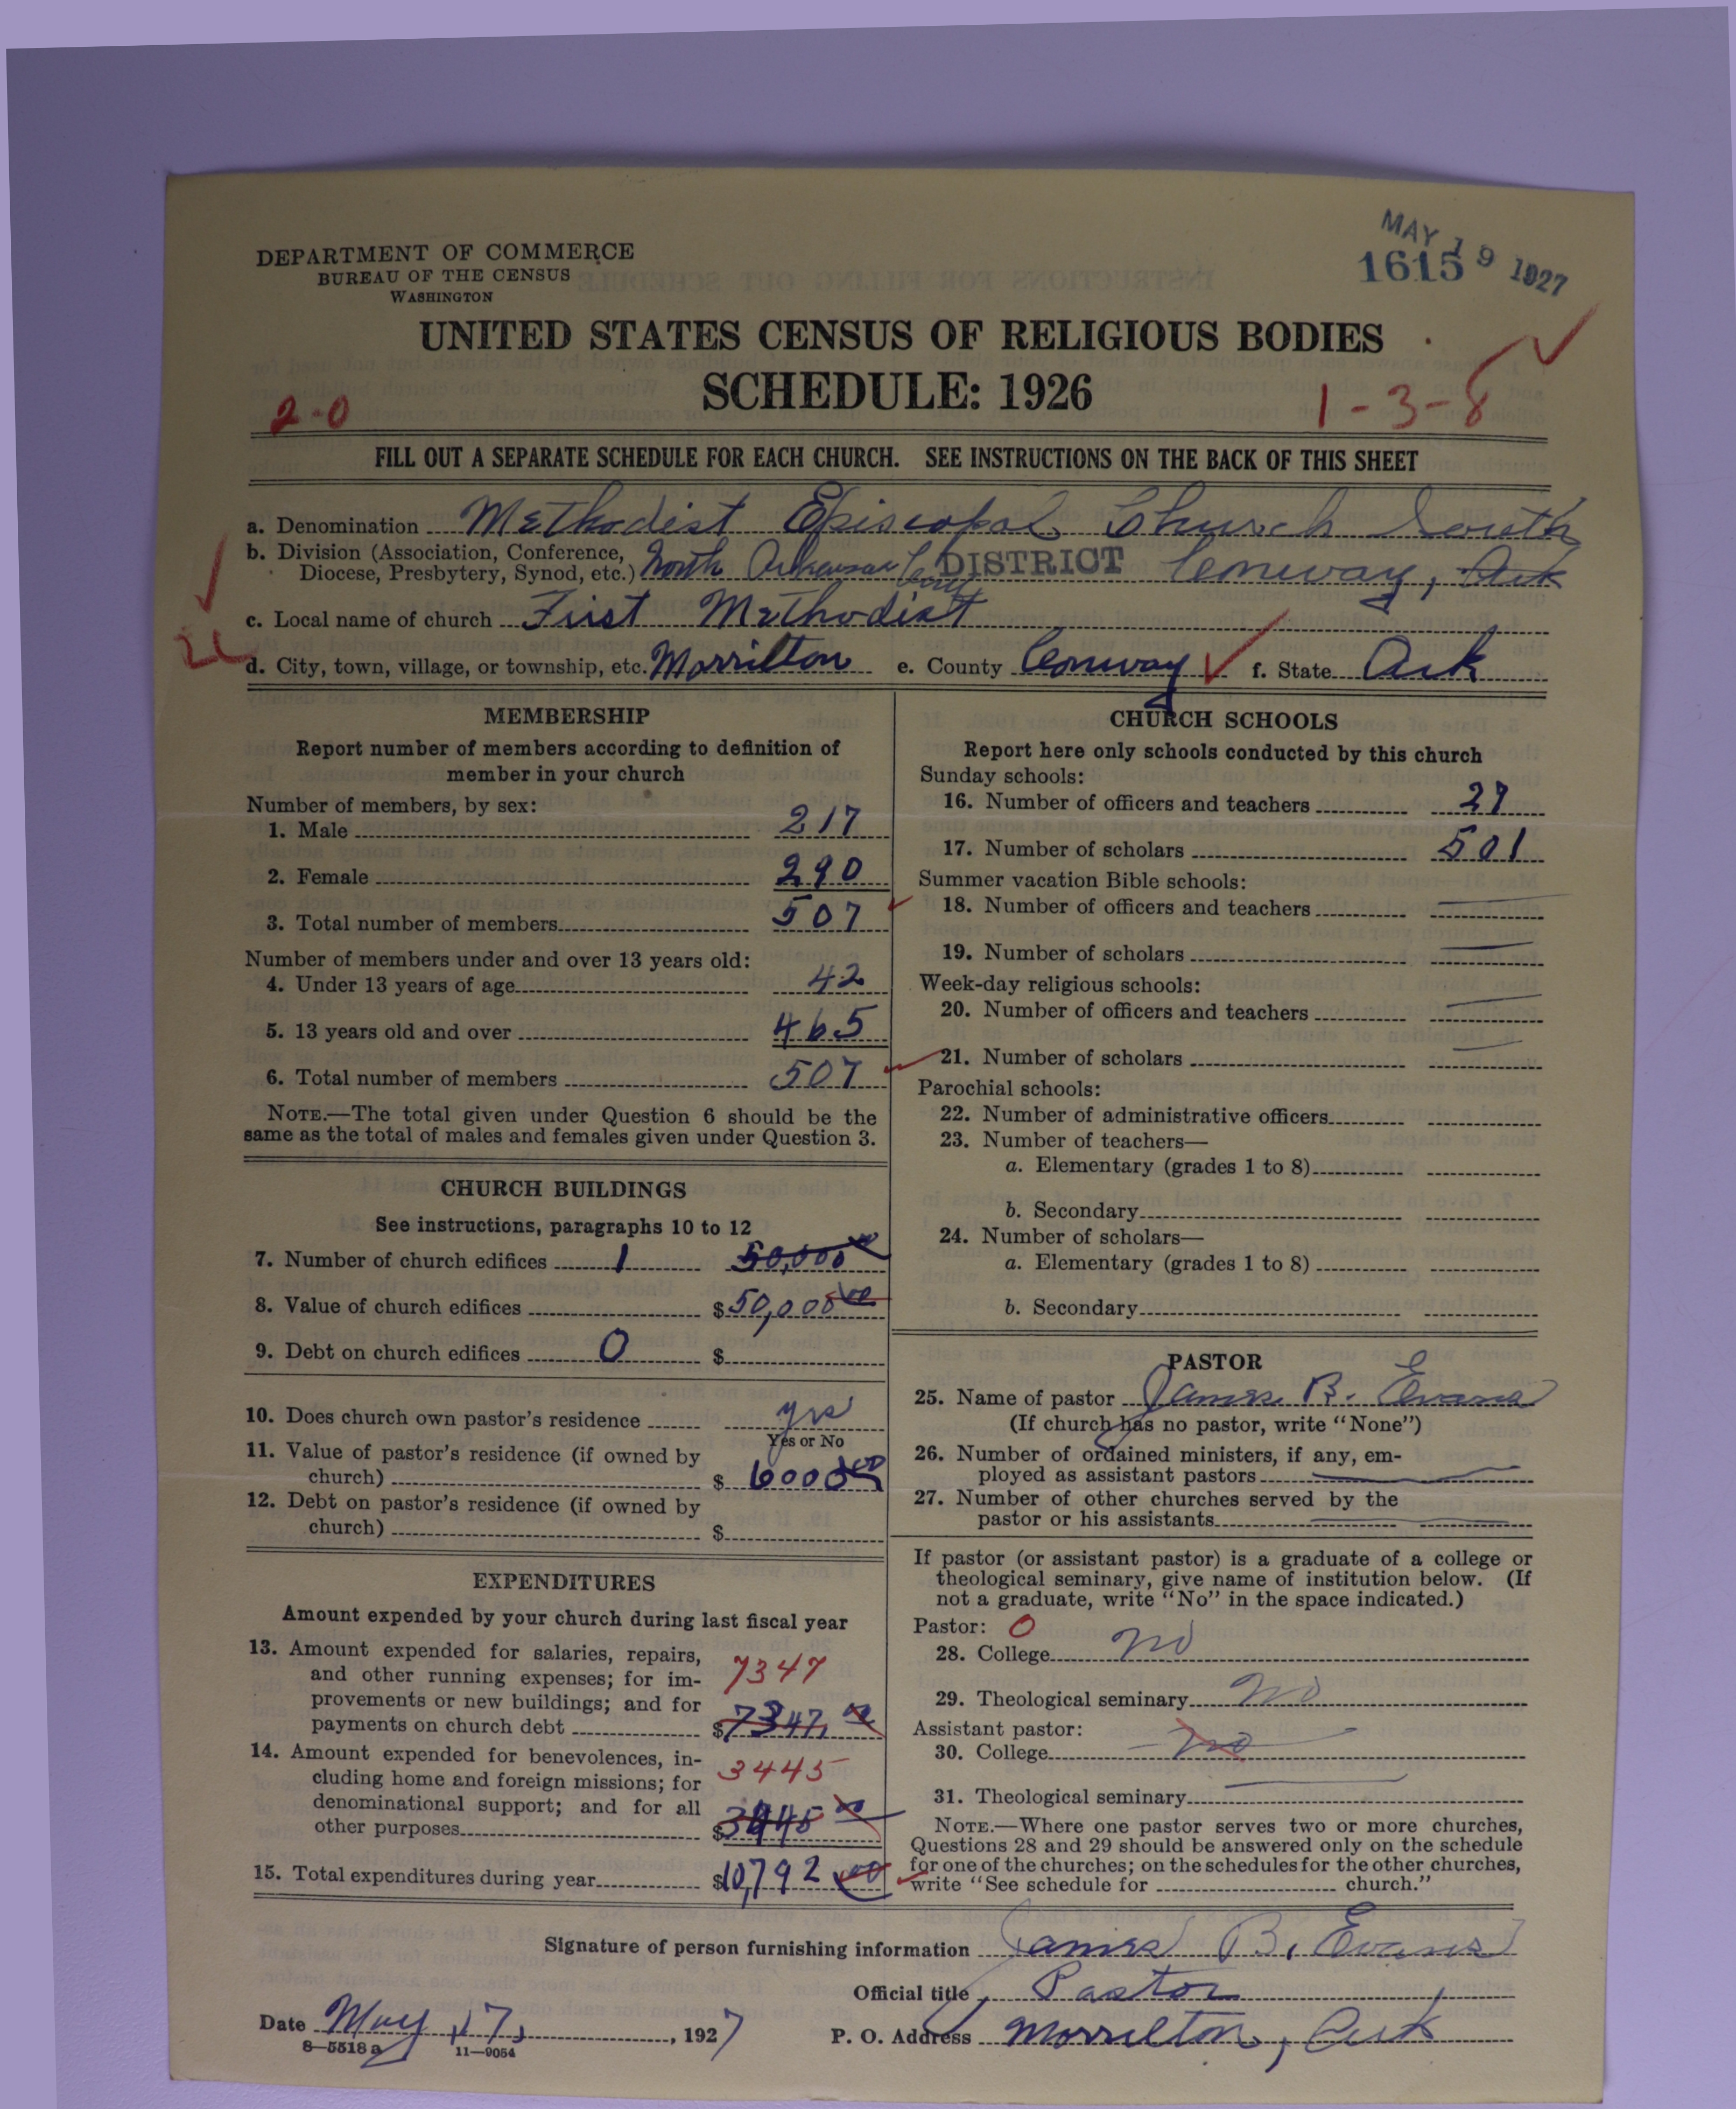 DEPARTMENT OF COMMERCE
BUREAU OF THE CENSUS
WASHINGTON
MAY 19 1927
1615
UNITED STATES CENSUS OF RELIGIOUS BODIES
SCHEDULE: 1926
2-0
1-3-8
FILL OUT A SEPARATE SCHEDULE FOR EACH CHURCH. SEE INSTRUCTIONS ON THE BACK OF THIS SHEET
a. Denomination Methodist Episcopal Church South
b. Division (Association, Conference, Diocese, Presbytery, Synod, etc.) North Arkansas Conf DISTRICT Conway, Ark
c. Local name of church First Methodist
d. City, town, village, or township, etc. Morrilton e. County Conway f. State Ark
MEMBERSHIP
Report number of members according to definition of
member in your church
Number of members, by sex:
1. Male 217
2. Female 290
3. Total number of members 507
Number of members under and over 13 years old:
4. Under 13 years of age 42
5. 13 years old and over 465
6. Total number of members 507
NOTE.—The total given under Question 6 should be the
same as the total of males and females given under Question 3.
CHURCH BUILDINGS
See instructions, paragraphs 10 to 12
7. Number of church edifices 1 50,000 00
8. Value of church edifices $50,000 00
9. Debt on church edifices 0 $
10. Does church own pastor's residence yes
Yes or No
11. Value of pastor's residence (if owned by
church) $ 6000 00
12. Debt on pastor's residence (if owned by
church) $
EXPENDITURES
Amount expended by your church during last fiscal year
13. Amount expended for salaries, repairs,
and other running expenses; for im-
provements or new buildings; and for
payments on church debt
7347
$7347.00
14. Amount expended for benevolences, in-
cluding home and foreign missions; for
denominational support; and for all
other purposes
3445
$3445 00
15. Total expenditures during year $10,792 00
CHURCH SCHOOLS
Report here only schools conducted by this church
Sunday schools:
16. Number of officers and teachers 27
17. Number of scholars 501
Summer vacation Bible schools:
18. Number of officers and teachers
19. Number of scholars
Week-day religious schools:
20. Number of officers and teachers
21. Number of scholars
Parochial schools:
22. Number of administrative officers
23. Number of teachers—
a. Elementary (grades 1 to 8)
b. Secondary
24. Number of scholars—
a. Elementary (grades 1 to 8)
b. Secondary
PASTOR
25. Name of pastor James B. Evans
(If church has no pastor, write "None")
26. Number of ordained ministers, if any, em-
ployed as assistant pastors
27. Number of other churches served by the
pastor or his assistants
If pastor (or assistant pastor) is a graduate of a college or
theological seminary, give name of institution below. (If
not a graduate, write "No" in the space indicated.)
Pastor: 0
28. College no
29. Theological seminary no
Assistant pastor:
30. College no
31. Theological seminary
NOTE.—Where one pastor serves two or more churches,
Questions 28 and 29 should be answered only on the schedule
for one of the churches; on the schedules for the other churches,
write "See schedule for church."
Signature of person furnishing information James B. Evans
Official title Pastor
Date May 17, 1927 P. O. Address Morrilton, Ark
8—5518a 11—9054